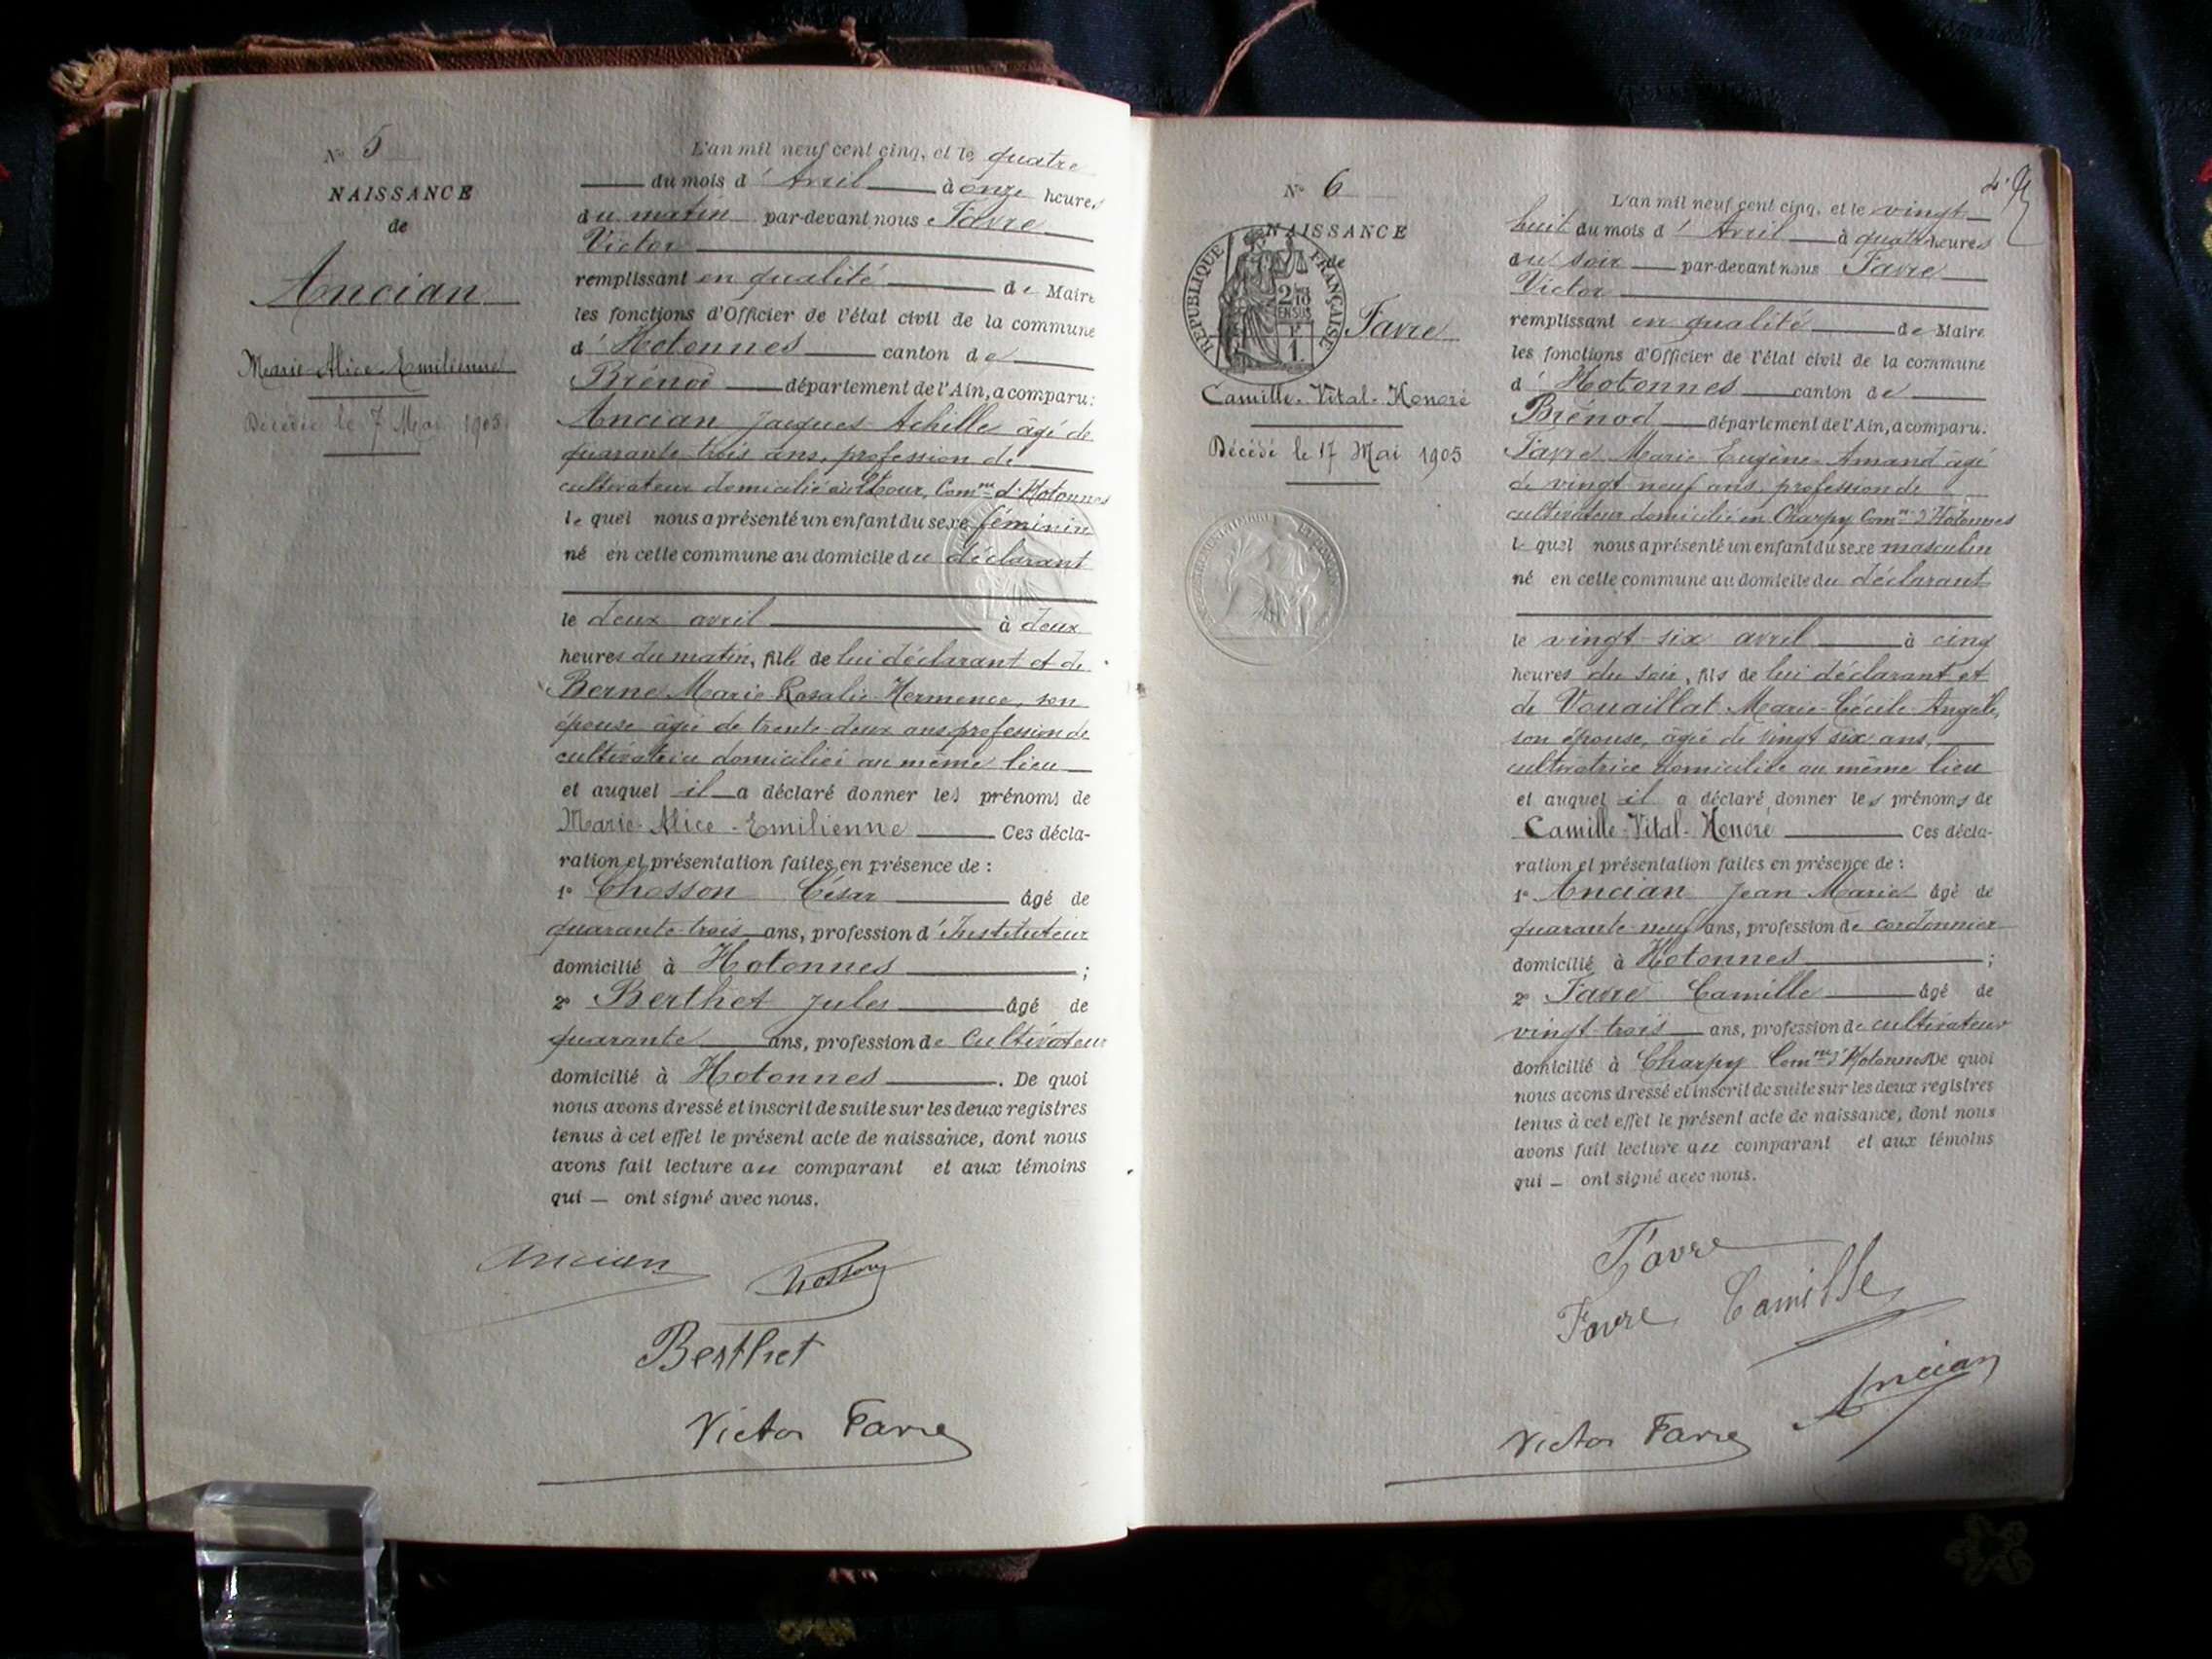 N° 5
NAISSANCE
de
Ancian
Marie-Alice-Emilienne
Décédée le 7 Mai 1905
L'an mil neuf cent cinq, et le quatre
du mois d'Avril à onze heures
du matin par-devant nous Favre
Victor
remplissant en qualité de Maire
les fonctions d'Officier de l'état civil de la commune
d'Hotonnes canton de
Brénod département de l'Ain, a comparu:
Ancian Jacques Achille âgé de
quarante trois ans, profession de
cultivateur domicilié Com^ne d'Hotonnes
lequel nous a présenté un enfant du sexe féminin
né en cette commune au domicile du déclarant
le deux avril à deux
heures du matin, fille de lui déclarant et de
Berne Marie-Rosalie-Hermence, son
épouse âgée de trente deux ans profession de
cultivatrice domiciliée au même lieu
et auquel il a déclaré donner les prénoms de
Marie-Alice-Emilienne Ces décla-
ration et présentation faites en présence de :
1° Chosson César âgé de
quarante-trois ans, profession d'Instituteur
domicilié à Hotonnes ;
2° Berthet Jules âgé de
quarante ans, profession de Cultivateur
domicilié à Hotonnes . De quoi
nous avons dressé et inscrit de suite sur les deux registres
tenus à cet effet le présent acte de naissance, dont nous
avons fait lecture au comparant et aux témoins
qui — ont signé avec nous.
Ancian Chosson
Berthet
Victor Favre
N° 6
NAISSANCE
de
RÉPUBLIQUE FRANÇAISE
Favre
Camille-Vital-Honoré
Décédé le 17 Mai 1905
L'an mil neuf cent cinq, et le vingt
huit du mois d'Avril à quatre heures
du soir par-devant nous Favre
Victor
remplissant en qualité de Maire
les fonctions d'Officier de l'état civil de la commune
d'Hotonnes canton de
Brénod département de l'Ain, a comparu:
Favre Marie-Eugène-Amand âgé
de vingt neuf ans, profession de
cultivateur domicilié en Charpy Com^ne d'Hotonnes
lequel nous a présenté un enfant du sexe masculin
né en cette commune au domicile du déclarant
le vingt-six avril à cinq
heures du soir, fils de lui déclarant et
de Vouaillat Marie-Cécile-Angèle,
son épouse, âgée de vingt six ans,
cultivatrice domiciliée au même lieu
et auquel il a déclaré donner les prénoms de
Camille-Vital-Honoré Ces décla-
ration et présentation faites en présence de :
1° Ancian Jean-Marie âgé de
quarante-neuf ans, profession de cordonnier
domicilié à Hotonnes ;
2° Favre Camille âgé de
vingt-trois ans, profession de cultivateur
domicilié à Charpy Com^ne d'Hotonnes De quoi
nous avons dressé et inscrit de suite sur les deux registres
tenus à cet effet le présent acte de naissance, dont nous
avons fait lecture au comparant et aux témoins
qui — ont signé avec nous.
Favre
Favre Camille
Ancian
Victor Favre